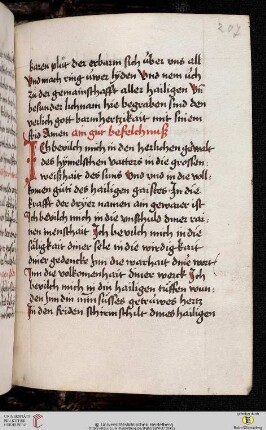 207
baren plůt der erbarm sich über uns all
Und mach ring üwer lyden Und nem üch
zů der gemainschafft aller hailigen Und
besunder lichnam hie begraben sind den
verlich gott barmhertzikait mit sinem
frid Amen ain gůt befelchnuß
Ich bevilch mich in den herlichen gewalt
des hymelschen vatters in die grossen
weißhait des suns Und und in die voll
komen güti des hailigen gaistes In die
krafft der dryer namen am gewarer ist
Ich bevilch mich in die unschuld diner rai
nen menschait Ich bevilch mich in die
säligkait diner sele in die wirdigkait
diner gedenck Inn die warhait dine wort
Inn die volkomenhait diner werck Ich
bevilch mich in din hailigen tüffen wun
den Inn din min süsses getrüwes hertz
In den friden schirmschilt dines hailigen
UNIVERSITÄTS-
BIBLIOTHEK
HEIDELBERG
© Universitätsbibliothek Heidelberg